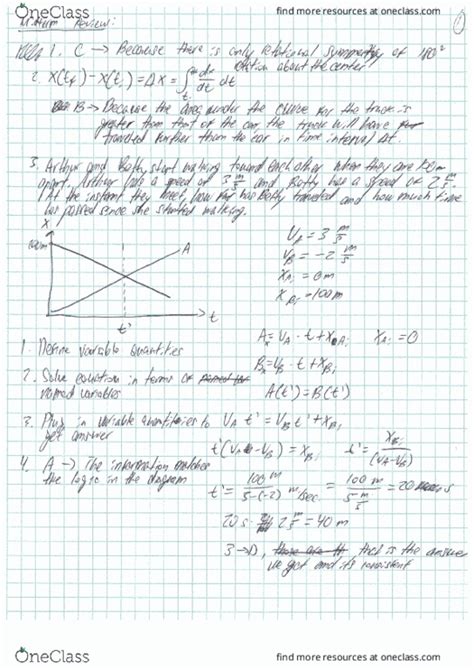 OneClass
find more resources at oneclass.com
Midterm Review:
1
1. C → Because there is only rotational symmetry of 180°
rotation about the center
2. X(t_f) - X(t_i) = ΔX = ∫ dx/dt dt
B → Because the area under the curve for the truck is
greater than that of the car, the truck will have
traveled further than the car in time interval Δt.
3. Arthur and Betty start walking toward each other when they are 100m
apart. Arthur has a speed of 3 m/s and Betty has a speed of 2 m/s.
At the instant they meet, how far has Betty traveled and how much time
has passed since she started walking.
X
100m
A
t'
t
V_A = 3 m/s
V_B = -2 m/s
X_Ai = 0m
X_Bi = 100m
A_x = V_A · t + X_Ai X_Ai = 0
B_x = V_B · t + X_Bi
A(t') = B(t')
1. Define variable quantities
2. Solve equation in terms of
named variables
3. Plug in variable quantities to
get answer
V_A t' = V_B t' + X_Bi
t'(V_A - V_B) = X_Bi t' = X_Bi/(V_A - V_B)
4. A → The information matches
the logic in the diagram
t' = 100 m / (-2) m/sec = 100m / 5 m/s = 20 s
20 s · 2 m/s = 40 m
3 → D, that is the answer
we get and its consistent
OneClass
find more resources at oneclass.com